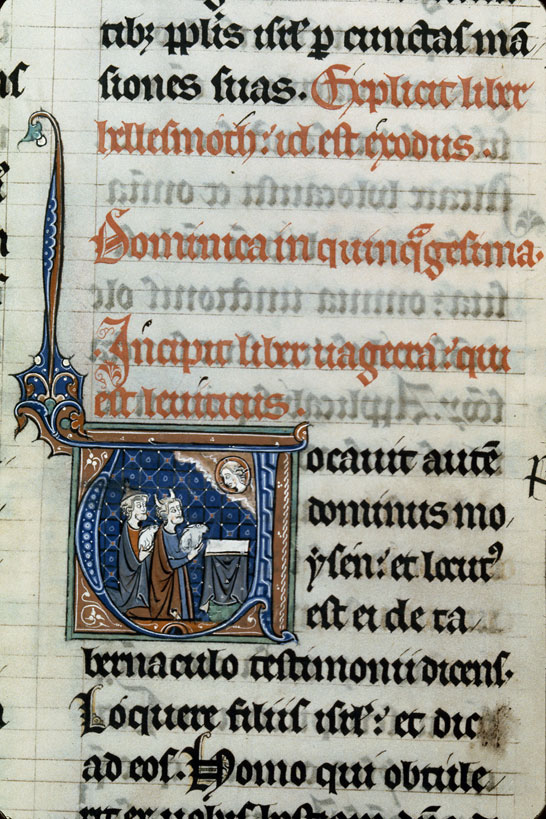 tibꝫ pplis isrl̄ ꝑ cunctas mā
siones suas. Explicit liber
hellesmoth: id est exodus.
Dominica in quinqᵃgesima.
Incipit liber uagecra: qui
est leuiticus.
Vocauit autē
dominus mo
ysen: et locutꝰ
est ei de ta
bernaculo testimonii dicens.
Loquere filiis isrl̄: et dic
ad eos. Homo qui obtule
rit ex uobis hostiam